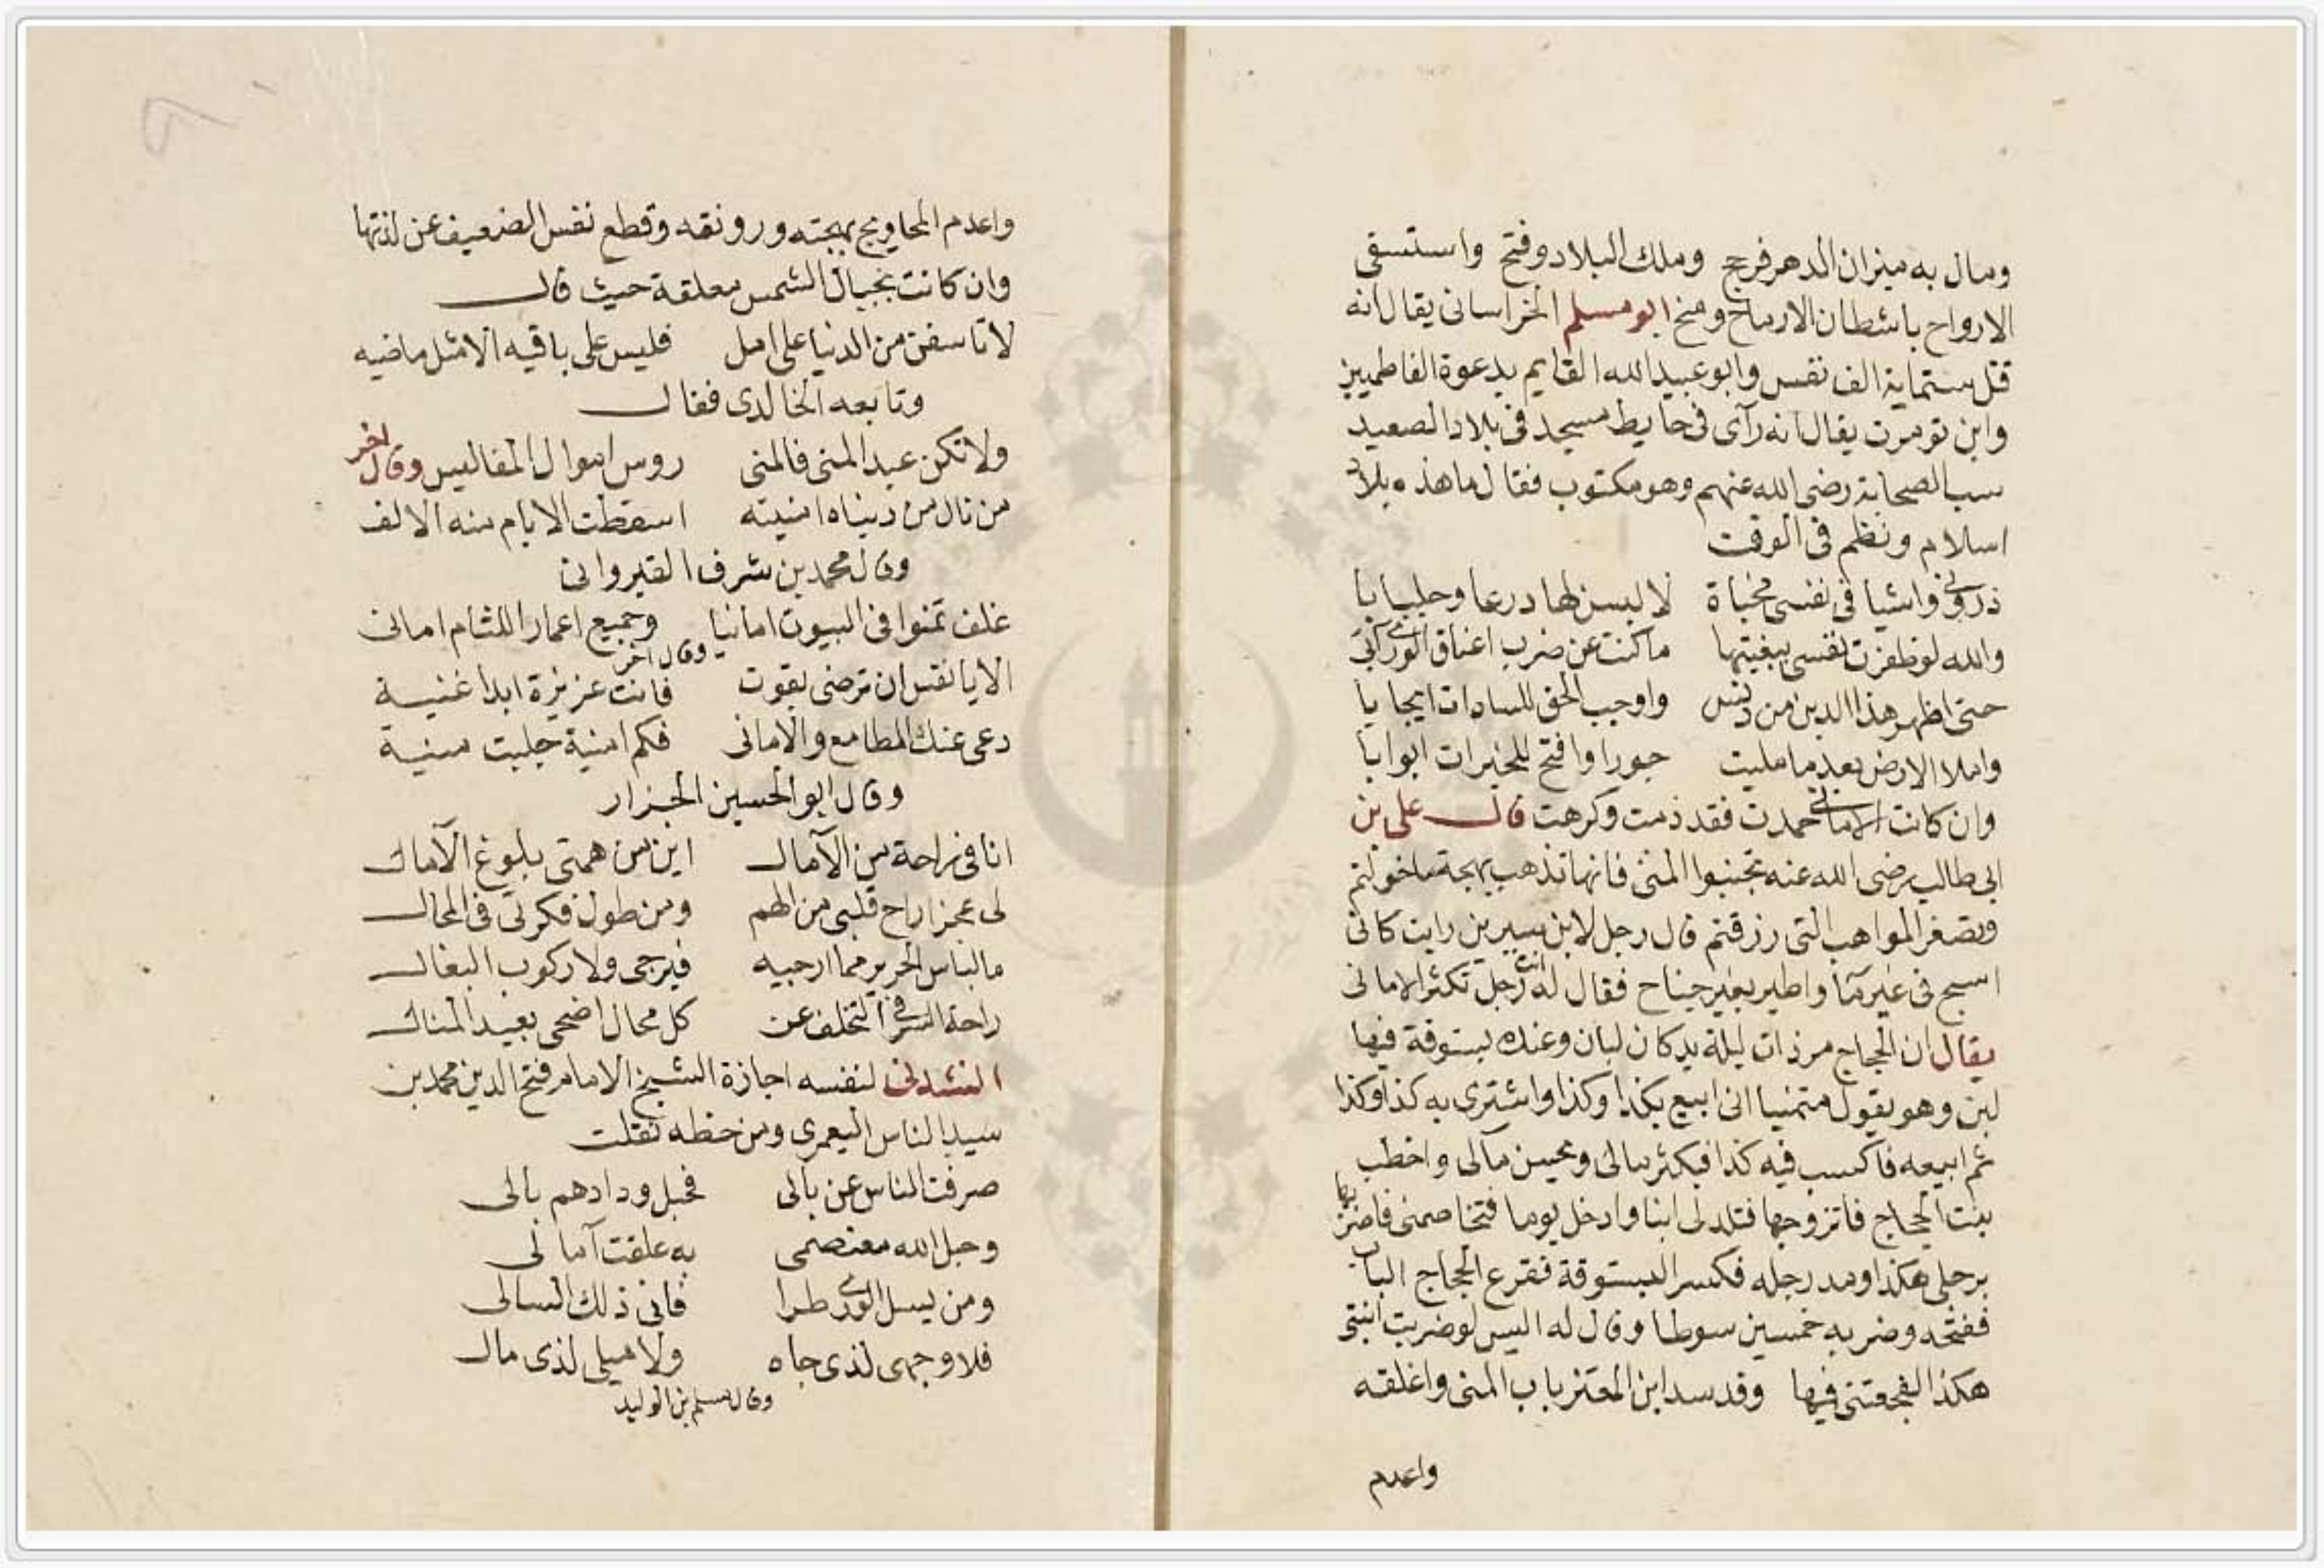 ومال به ميزان الدهر فرجح وملك البلاد وفتح واستسقى
الارواح باشطان الارماح ومنح ابو مسلم الخراسانى يقال انه
قتل ستماية الف نفس وابو عبيد الله القايم بدعوة الفاطميين
وابن تومرت يقال انه رآى فى حايط مسجد فى بلاد الصعيد
سب الصحابة رضى الله عنهم وهو مكتوب فقال ما هذه بلاد
اسلام ونظم فى الوقت
ذرونى واشيا فى نفسى مخباة لا لبسن لها درعا وجلبابا
والله لو ظفرت نفسى ببغيتها ما كنت عن ضرب اعناق الورى آبى
حتى اظهر هذا الدين من دنس واوجب الحق للسادات ايجابا
واملا الارض بعد ما مليت جورا وافتح للخيرات ابوابا
وان كانت الامانى حمدت فقد ذمت وكرهت قال على بن
ابى طالب رضى الله عنه تجنبوا المنى فانها تذهب بهجة ما خولتم
وتصغر المواهب التى رزقتم قال رجل لابن سيرين رايت كانى
اسبح فى غير مآ واطير بغير جناح فقال له انت رجل تكثر الامانى
يقال ان الحجاج مر ذات ليلة بدكان لبان وعنده بستوقة فيها
لبن وهو يقول متمنيا انى ابيع بكذا وكذا واشترى به كذا وكذا
ثم ابيعه فاكسب فيه كذا فيكثر مالى ويحسن مآلى واخطب
بنت الحجاج فاتزوجها فتلد لى ابنا وادخل يوما فتخاصمنى فاضربها
برجلى هكذا ومد رجله فكسر البستوقة فقرع الحجاج الباب
ففتحه وضربه خمسين سوطا وقال له اليس لو ضربت ابنتى
هكذا لفجعتنى فيها وقد سد ابن المعتز باب المنى واغلقه
واعدم
واعدم المحاويج بهجته ورونقه وقطع نفس الضعيف عن لذتها
وان كانت بحبال الشمس معلقة حيث قال
لا تاسفن من الدنيا على امل فليس على باقيه الا مثل ماضيه
وتابعه الخالدى فقال
ولا تكن عبد المنى فالمنى روس اموال المفاليس وقال اخر
من نال من دنياه امنيته اسقطت الايام منه الالف
وقال محمد بن شرف القيروانى
غلف تمنوا فى البيوت امانيا وجميع اعمار اللئام امانى
وقال اخر
الا يا نفس ان ترضى بقوت فانت عزيزة ابدا غنية
دعى عنك المطامع والامانى فكم امنية جلبت منية
وقال ابو الحسين الجزار
انا فى راحة من الآمال اين من همتى بلوغ الآمال
لى عجز اراح قلبى من الهم ومن طول فكرتى فى المحال
ما لباس الحرير مما ارجيه فيرجى ولا ركوب البغال
راحة السر فى التخلف عن كل محال اضحى بعيد المنال
انشدنى لنفسه اجازة الشيخ الامام فتح الدين محمد بن
سيد الناس اليعمرى ومن خطه نقلت
صرفت الناس عن بالى فحبل ودادهم بالى
وحبل الله معتصمى به علقت آمالى
ومن يسل الورى طرا فانى ذلك السالى
فلا وجهى لذى جاه ولا ميلى لذى مال
وقال مسلم بن الوليد